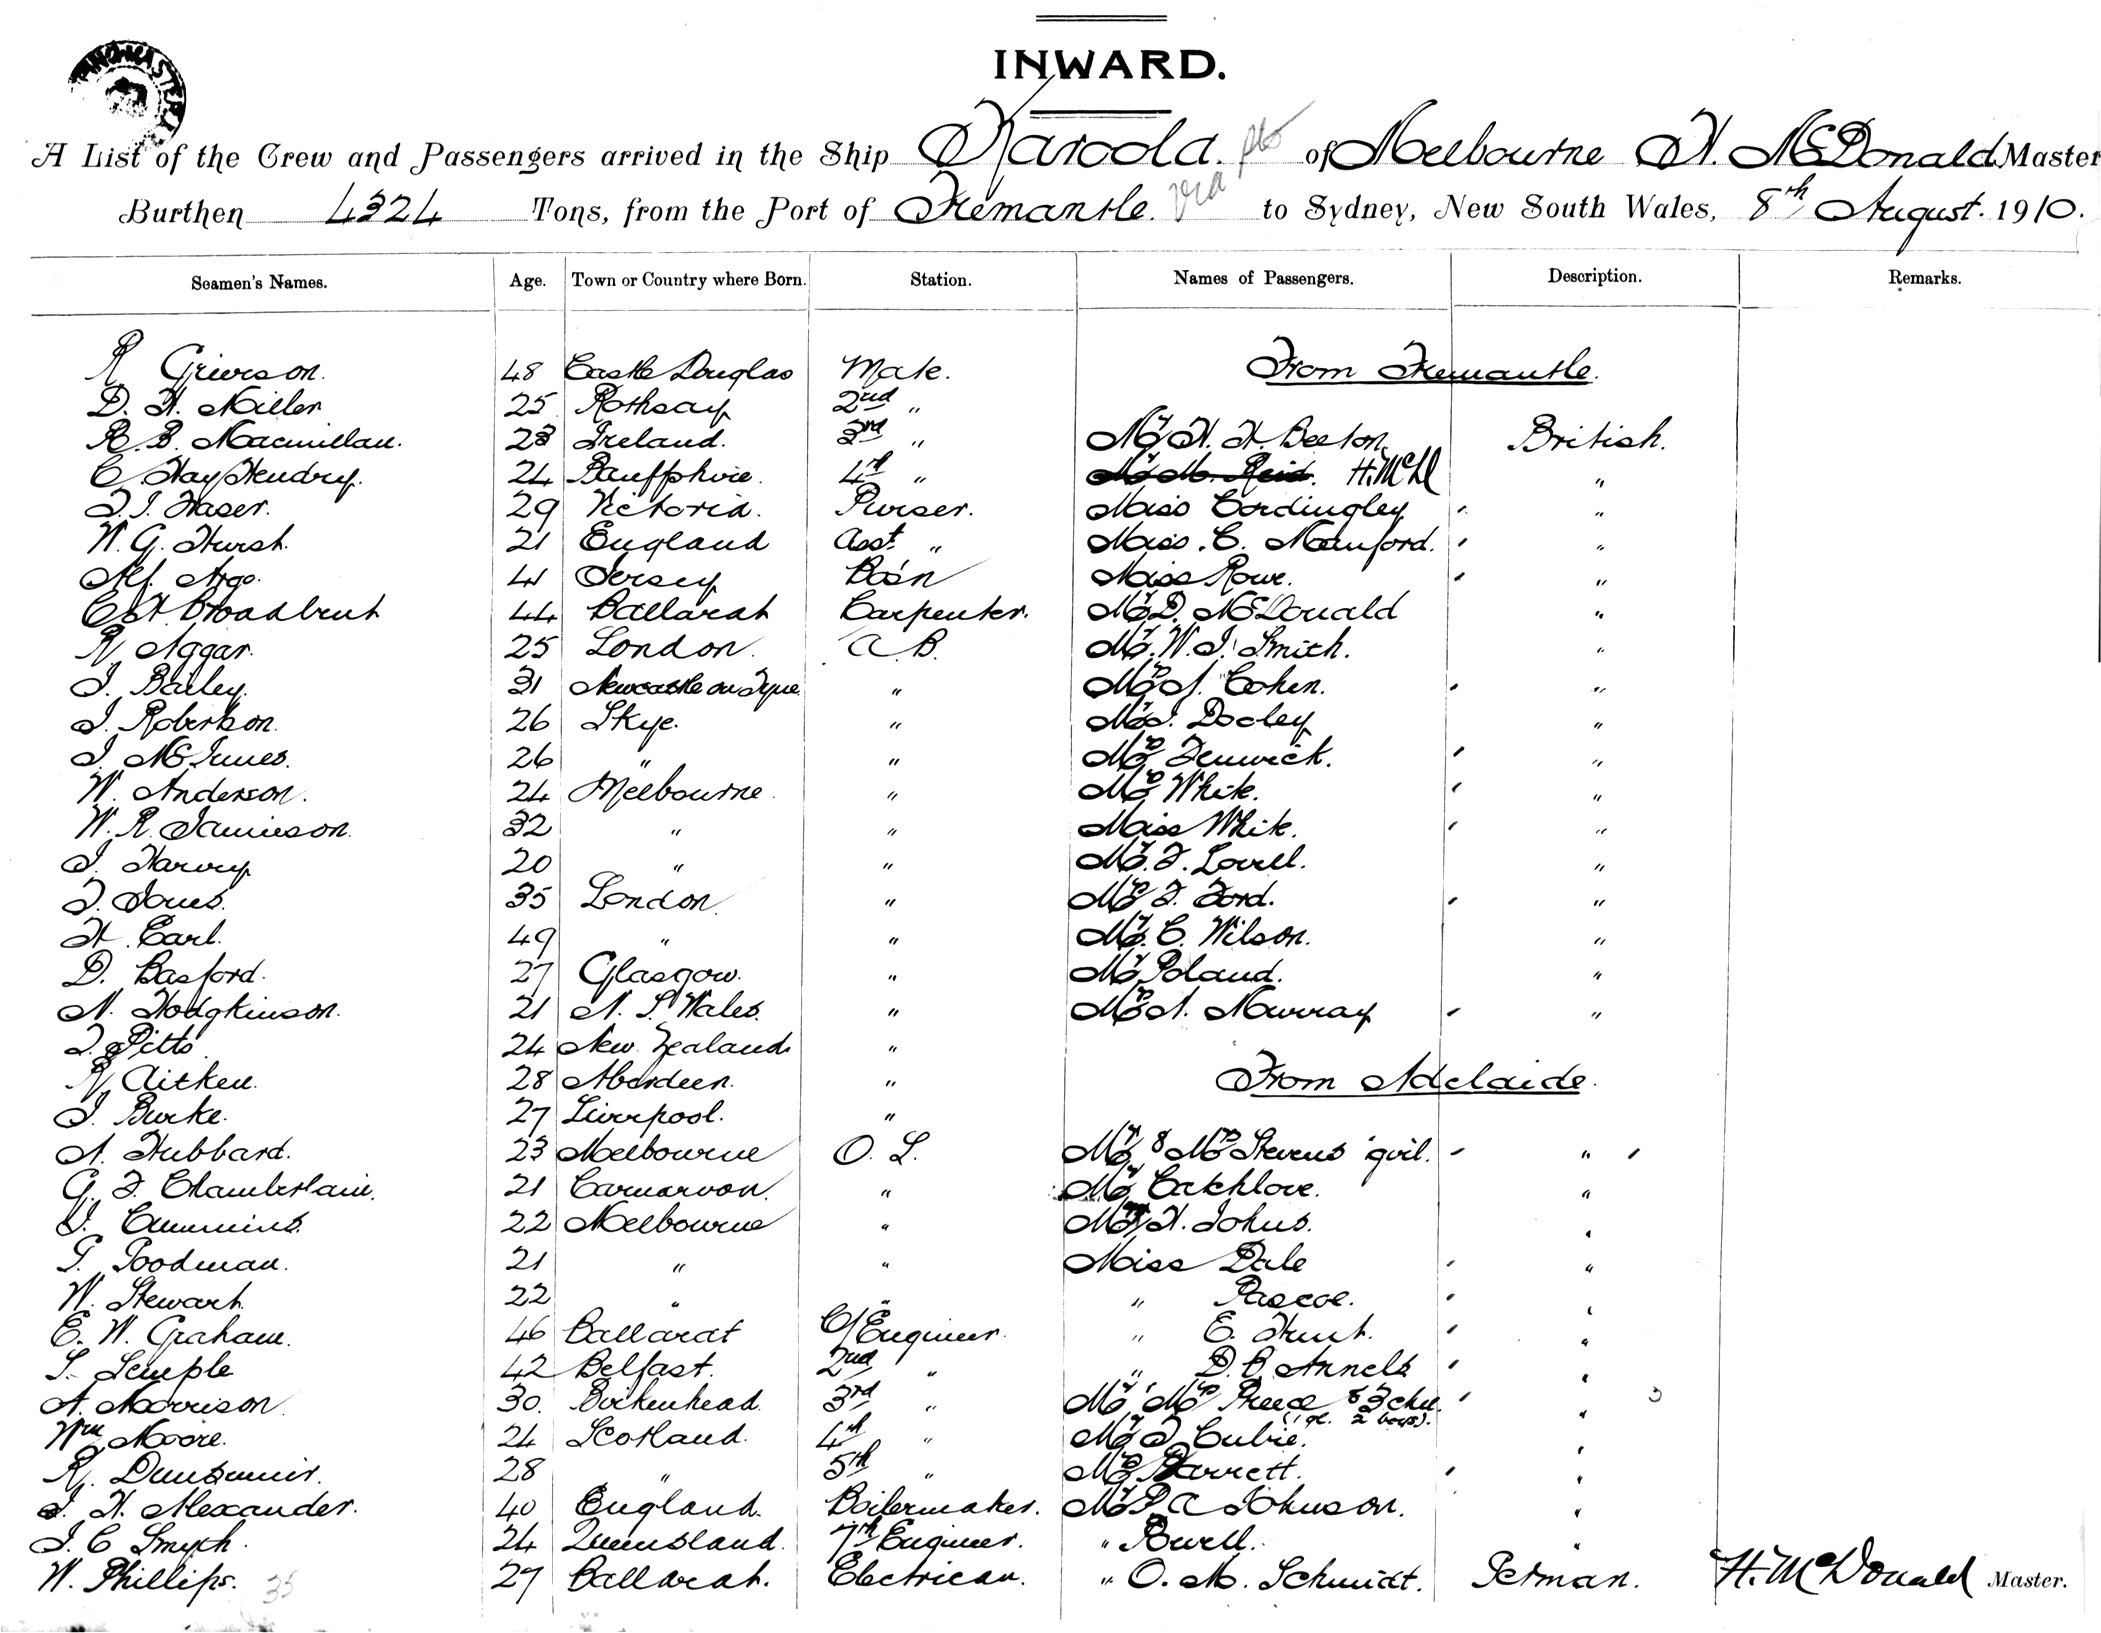 INWARD.
A List of the Crew and Passengers arrived in the Ship Karoola. of Melbourne H. McDonald Master
Burthen 4324 Tons, from the Port of Fremantle. via to Sydney, New South Wales, 8th August. 1910.
Seamen's Names. Age. Town or Country where Born. Station. Names of Passengers. Description. Remarks.
R Grierson. 48 Castle Douglas Mate. From Fremantle.
D. H. Miller 25 Rothsay 2nd "
R. B. Macmillan. 23 Ireland. 3rd " Mr H. H. Beeton British.
C. Hay Hendry. 24 Banffshire. 4th " Mr M. Reid. H.McD "
F. J. Fraser. 29 Victoria. Purser. Miss Cordingley "
W. G. Hurst. 21 England Asst. " Miss. C. Manford. "
Alf. Argo. 41 Jersey Bosn Miss Rowe. "
C H Broadbent 44 Ballarat Carpenter. Mr D. McDonald "
R Aggar. 25 London. A. B. Mr. W. J. Smith. "
J. Bailey. 31 Newcastle on Tyne " Mrs A. Cohen. "
J. Robertson. 26 Skye. " Mr J. Dooley "
J. McInnes. 26 " " Mrs Fenwick. "
W. Anderson. 24 Melbourne. " Mrs White. "
W. R. Jamieson. 32 " " Miss White. "
J. Harvey 20 " " Mr. F. Lovell. "
J. Jones. 35 London. " Mrs F. Ford. "
H. Earl. 49 " " Mr. C. Wilson. "
D. Basford. 27 Glasgow. " Mr Poland. "
N. Hodgkinson. 21 N. S. Wales. " Mrs A. Murray "
J. Pitts 24 New Zealand " 
R Aitken. 28 Aberdeen. " From Adelaide.
J. Burke. 27 Liverpool. "
A. Hubbard. 23 Melbourne O. S. Mr & Mrs Stevens 1 girl. "
G. F. Chamberlain. 21 Carnarvon. " Mr Catchlove. "
J. Cummins. 22 Melbourne " H. Johns. "
T. Goodman. 21 " " Miss Dale "
W. Stewart 22 " " " Pascoe. "
E. W. Graham. 46 Ballarat C/Engineer. " E. Hunt. "
S. Semple 42 Belfast. 2nd " " D. B. Annells "
A. Morrison 30. Birkenhead. 3rd " Mr, Mrs Preece & 3 chn. "
(1 gl. 2 boys).
Wm Moore. 24 Scotland. 4th " Mr J. Cubie. "
R. Dunsmuir. 28 " 5th " Mrs Barrett. "
J. H. Alexander. 40 England. Boilermaker. Mr P. A Johnson. "
J. C Smyth. 24 Queensland. 7th Engineer. " Powell. "
W. Phillips. 35 27 Ballarat. Electrican. " O. M. Schmidt. German. H. McDonald Master.